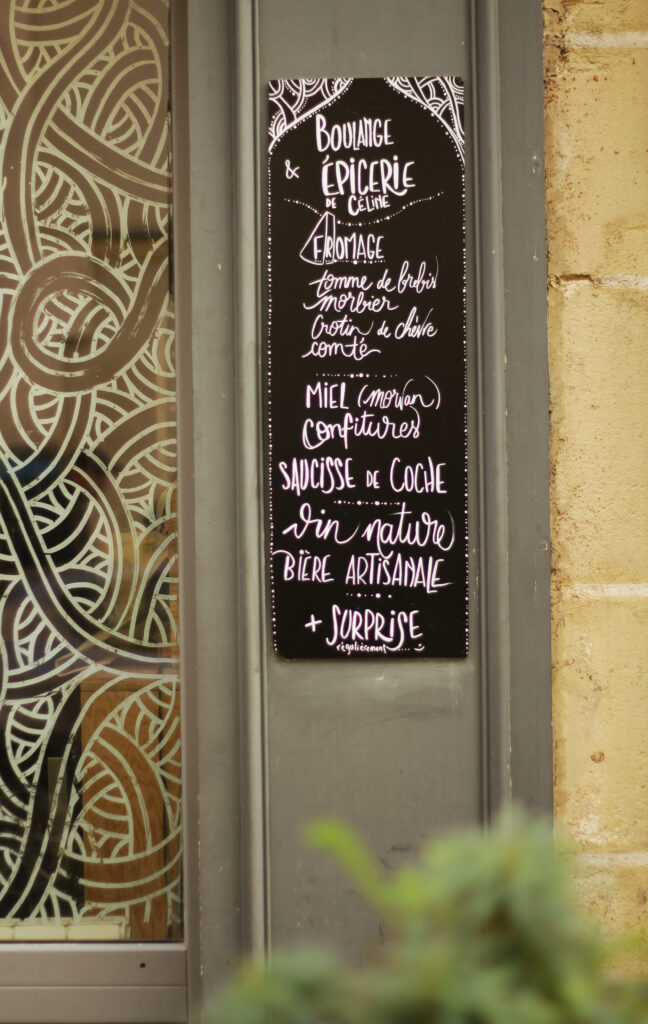 BOULANGE
& ÉPICERIE
DE CÉLINE
FROMAGE
tomme de brebis
morbier
Crotin de chèvre
comté
MIEL (morvan)
Confitures
SAUCISSE DE COCHE
vin nature
BIÈRE ARTISANALE
+ SURPRISE
régulièrement